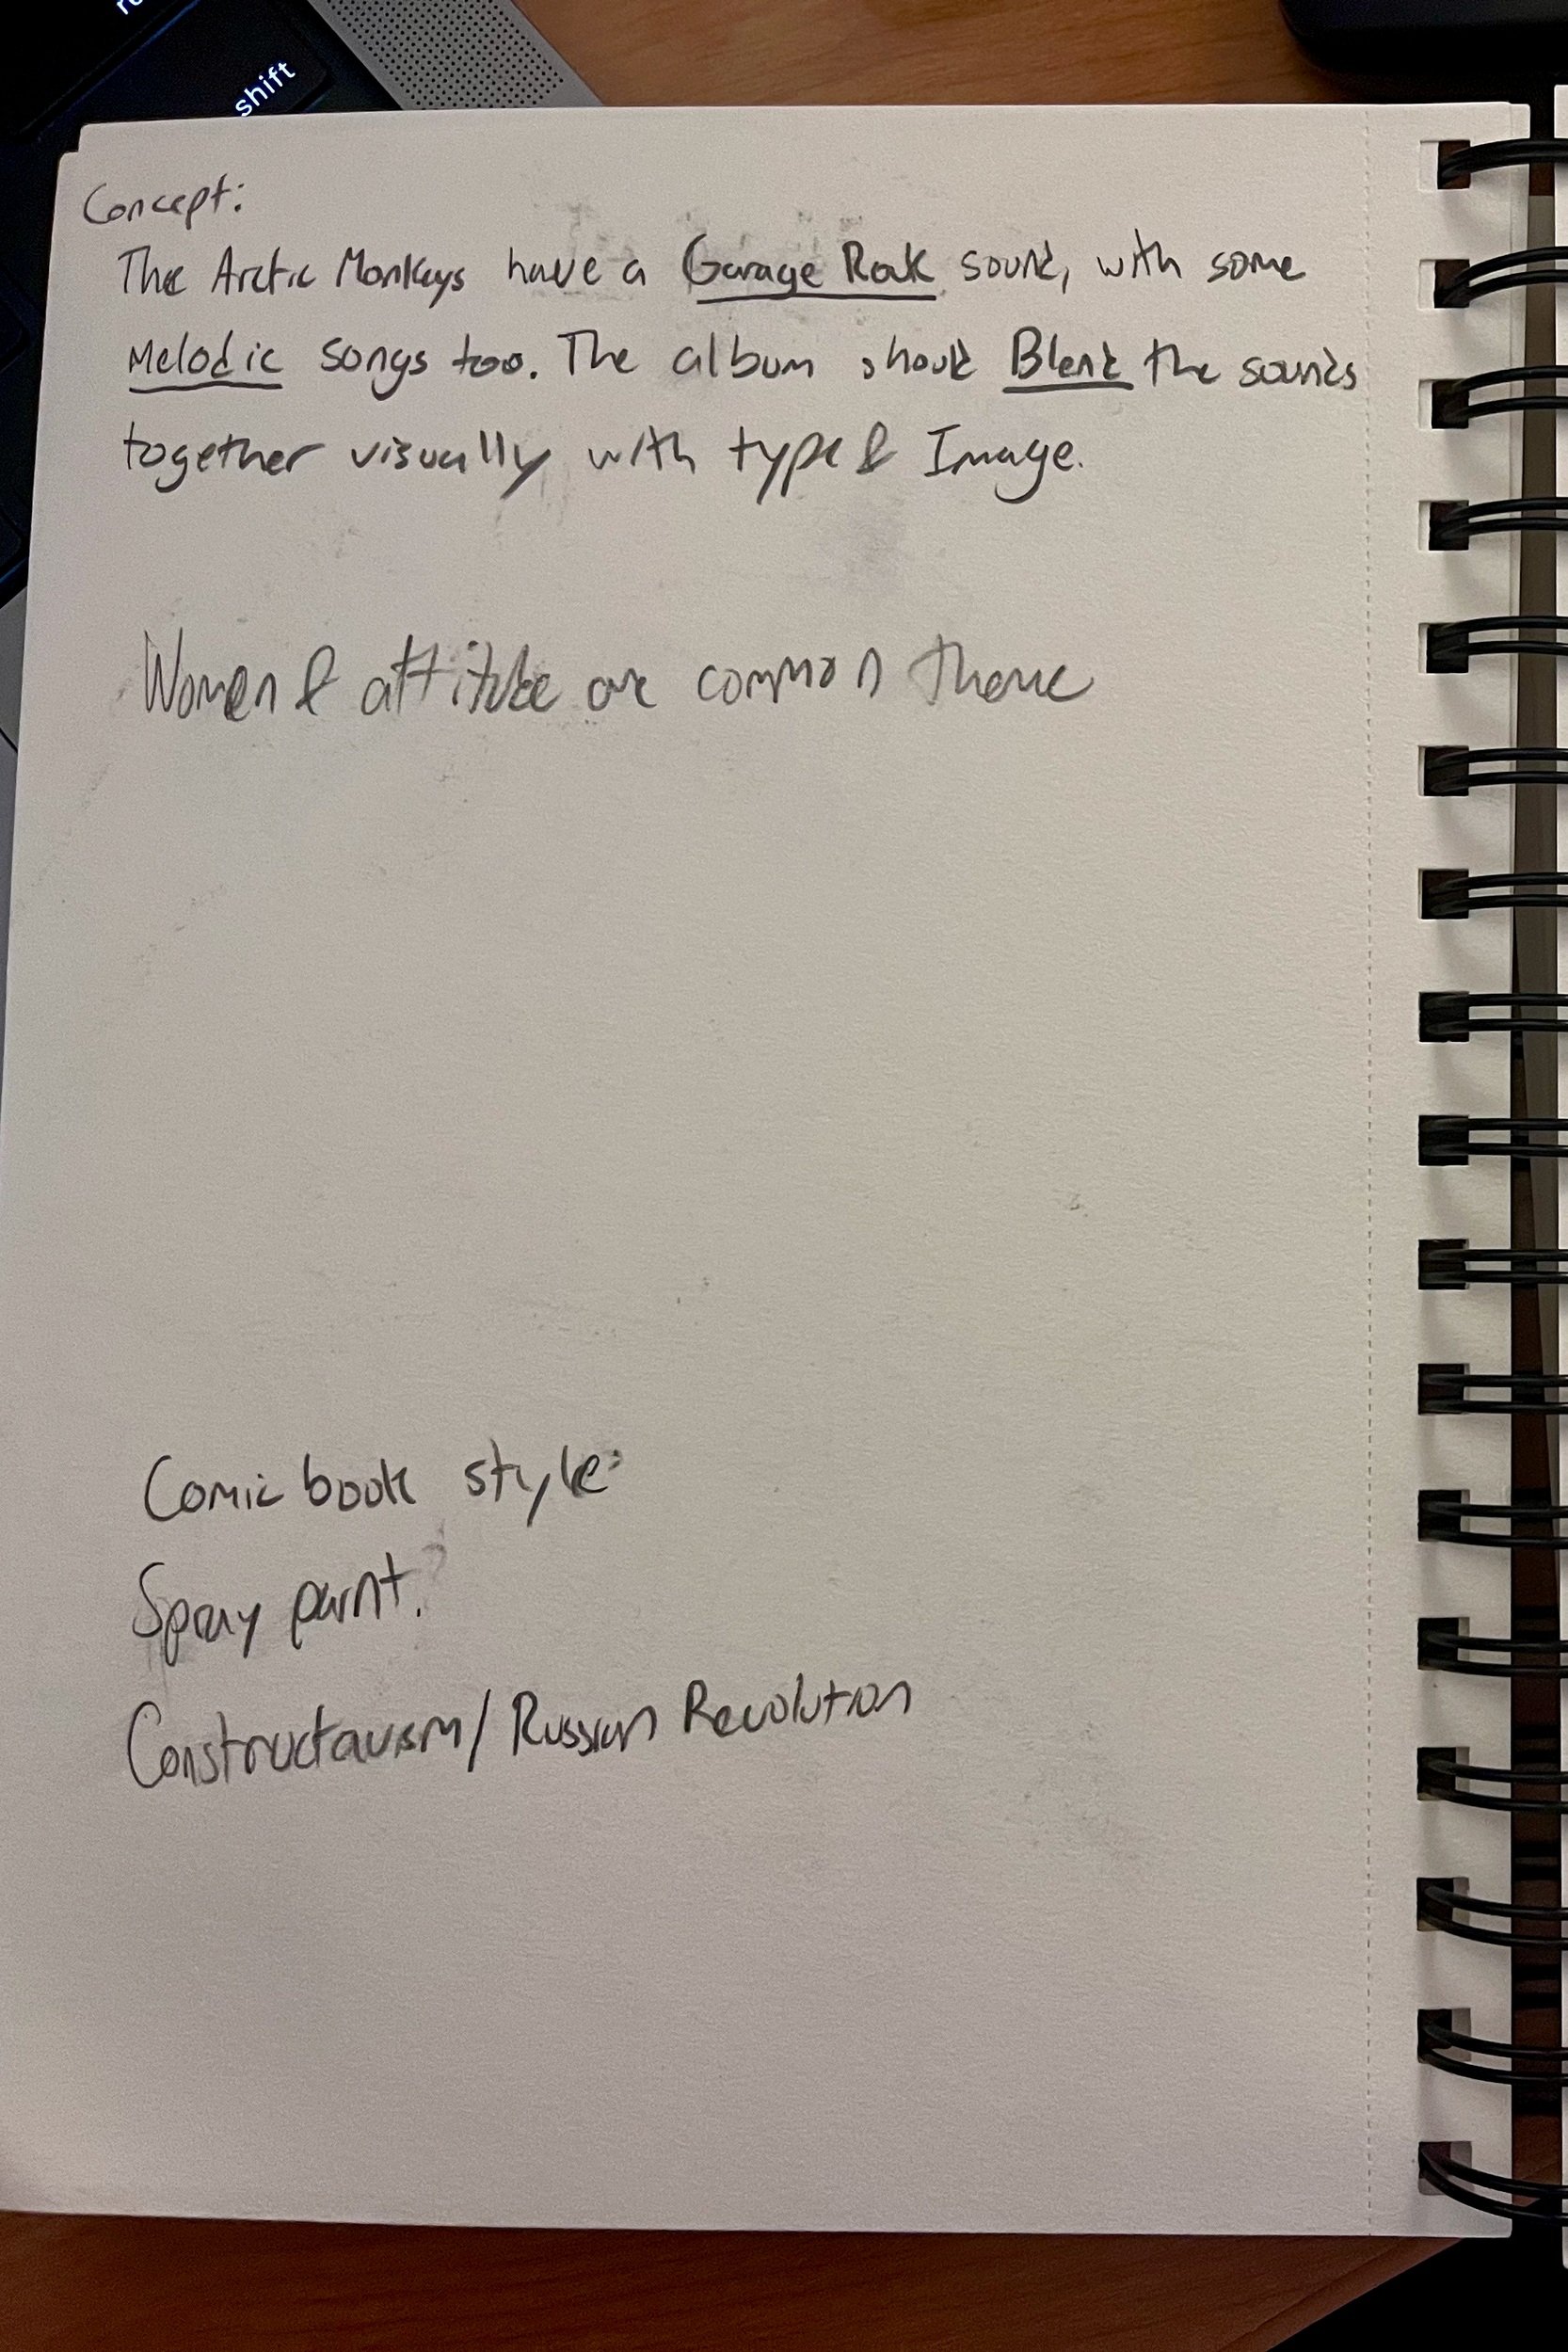 shift
Concept:
The Arctic Monkeys have a Garage Rock sound, with some
Melodic songs too. The album should Blend the sounds
together visually with type & Image.
Women & attitude are common theme
Comic book style:
Spray paint.
Constructavism/Russian Revolution